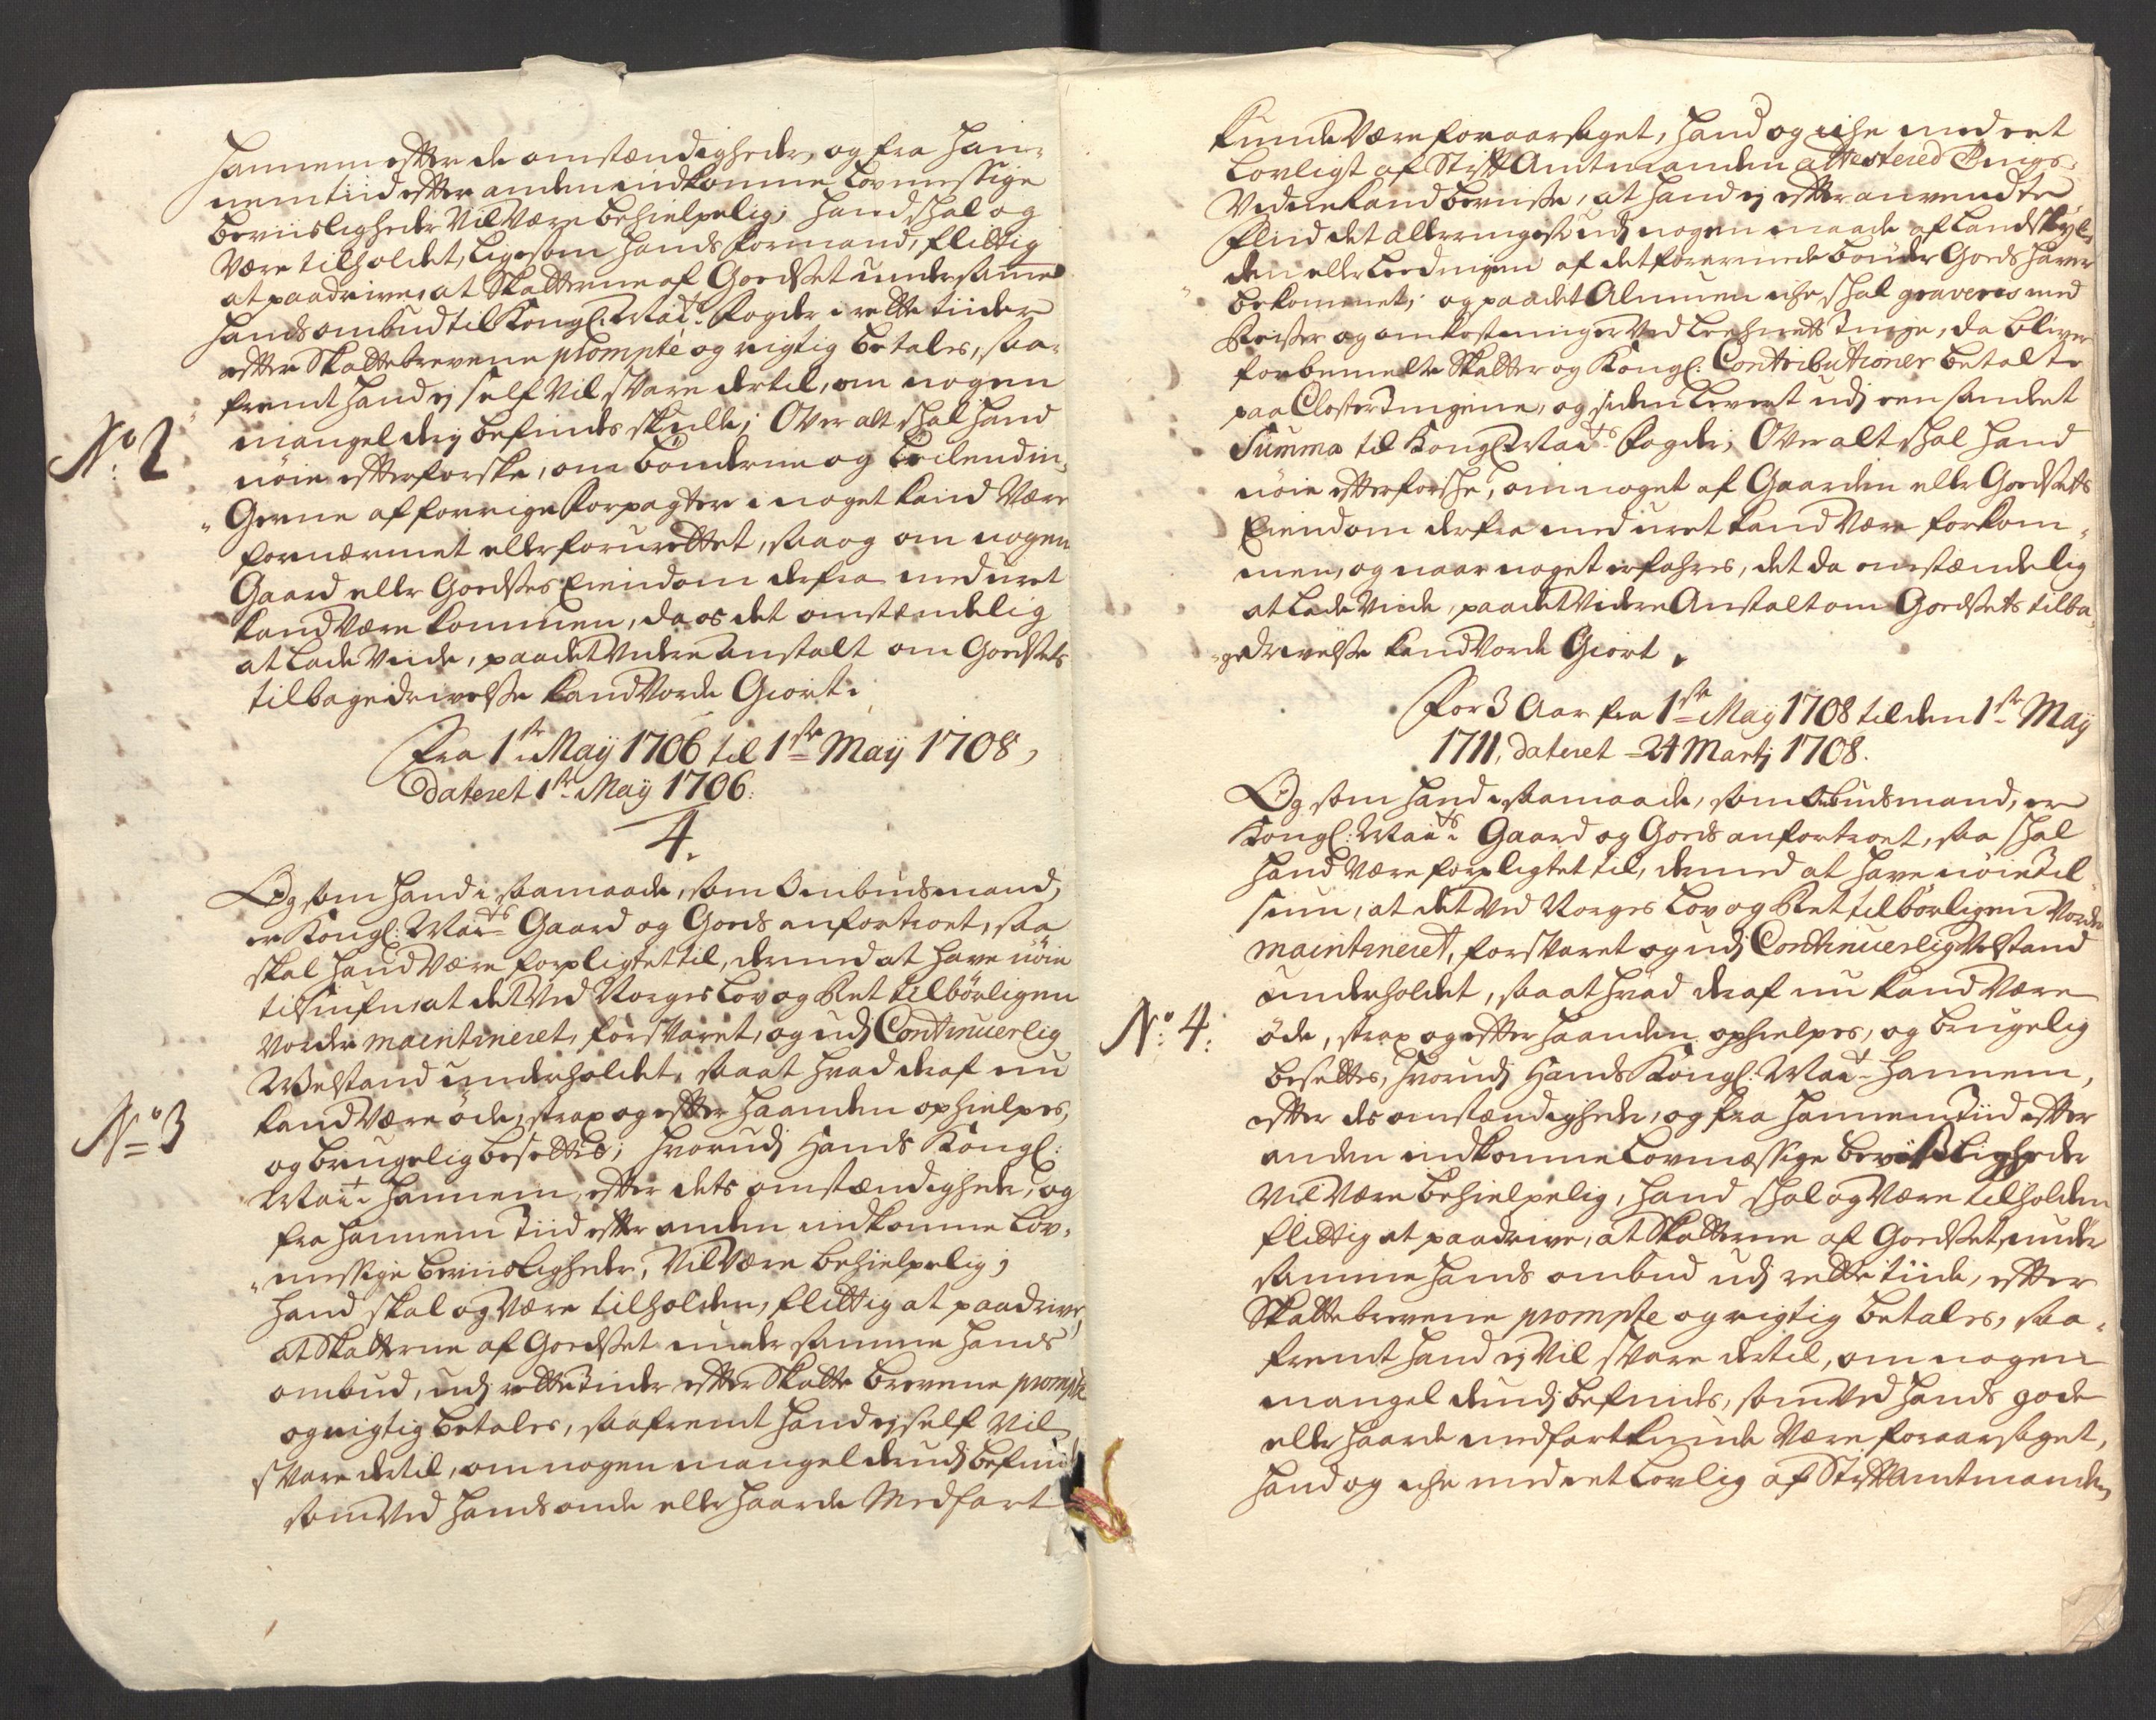 hannem efter de omstændigheder, og fra han-
nem tiid efter anden indkomme Lovmessige
beviisligheder Vil Være behielpelig; hand skal og
Være tilholdet, Ligesom hands formand, flittig
at paadrive, at Skatterne af Goedset under samme
hands ombud til Kongl: Maÿts Fogder i rette tiider
efter Skattebrevene prompte og rigtig betales, saa-
fremt hand ej self Vil svare dertil, om nogen
No: 2
mangel derj befindes skulle; Over alt skal hand
nøie efterforske, om bønderne og Leilendin-
gerne af forrige Forpagter i noget kand Være
fornærmet eller foruretted, saa og om nogen
Gaard eller Goedses Eiendom derfra med uret
kand Være kommen, da os det omstændelig
at Lade Viide, paa det Videre Anstalt om Goedsets
tilbagedrivelse kand Vorde Giort.
Fra 1ste Maÿ 1706 til 1ste Maÿ 1708,
dateret 1ste Maÿ 1706.
4.
Og som hand i saamaade, som Ombudsmand,
er Kongl: Maÿts Gaard og Goeds anfortroet, saa
skal hand Være forpligtet til, dermed at have nøie
tilsiufn, at det Ved Norges Lov og Ret tilbørligen
Vorder maintineret, forsvaret, og udj Continuerlig
Welstand underholdet, saa at hvad deraf nu
No: 3
kand Være øde, strax og efter haanden ophielpes,
og brugelig besettes; hvorudj Hands Kongl:
Maÿt: hannem, efter dets omstændigheder, og
fra hannem Tiid efter anden indkomme Lov-
messige beviisligheder, Vil Være behielpelig;
hand skal og Være tilholden, flittig at paadrive,
at Skatterne af Goedset under samme hands
ombud, udj rette Tiider efter Skatte brevene prompte
og rigtig betales, saafremt hand ej self Vil
svare dertil, om nogen mangel derudj befind
som Ved hands onde eller haarde Medfart
kunde Være foraarsaget, hand og iche med eet
Lovligt af StiftAmtmanden attestered Tings-
Vidne kand beviise, at hand ej efter anvendte
fliid det allerringeste udj nogen maade af Landskyl-
den eller Leedingen af det forarmede bønder Goeds haver
bekommet; og paa det Almuen iche skal graveres med
Reiser og omkostninger Ved Leehnets Tinge, da bliver
forbemelte Skatter og Kongl: Contributioner betalte
paa Closter Tingene, og siden Levert udj een samlet
Summa til Kongl: Maÿts Fogder; Over alt skal hand
nøie efterforsche, om noget af Gaarden eller Goedsets
Eiendom derfra med uret kand Være forkom-
men, og naar noget erfahres, det da omstændelig
at Lade Viide, paa det Videre Anstalt om Goedsets tilba-
gedrivelse kand Vorde Giort.
For 3 Aar fra 1ste Maÿ 1708 til den 1ste Maÿ
1711, dateret 24 Martj 1708.
Og som hand i saamaade, som Ombudsmand, er
Kongl: Maÿts Gaard og Goeds anfortroet, saa skal
hand Være forpligtet til, dermed at have nøie Til-
siun, at det Ved Norges Lov og Ret tilbørligen Vorder
maintineret, forsvaret og udj Continuerlig Velstand
underholdet, saa at hvad deraf nu kand Være
No: 4.
øde, strax og efter haanden ophielpes, og brugelig
besettes, hvorudj Hands Kongl: Maÿt: hannem,
efter de omstændigheder, og fra hannem Tiid efter
anden indkomme Lovmæssige beviisligheder
Vil Være behielpelig, hand skal og Være tilholden
flittig at paadrive, at Skatterne af Goedset, under
samme hands ombud udj rette tiide, efter
Skattebrevene prompte og rigtig betales, saa-
fremt hand ej Vil svare dertil, om nogen
mangel derudj befindes, som Ved hands gode
eller haarde medfart kunde Være foraarsaget,
hand og iche med eet Lovlig af Stiftamtmanden